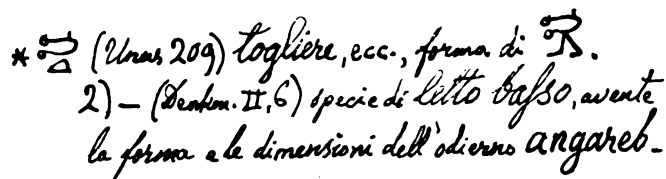 * (Unas 209) togliere, ecc., forma di .
2) — (Denkm. II, 6) specie di letto basso, avente
la forma e le dimensioni dell'odierno angareb -